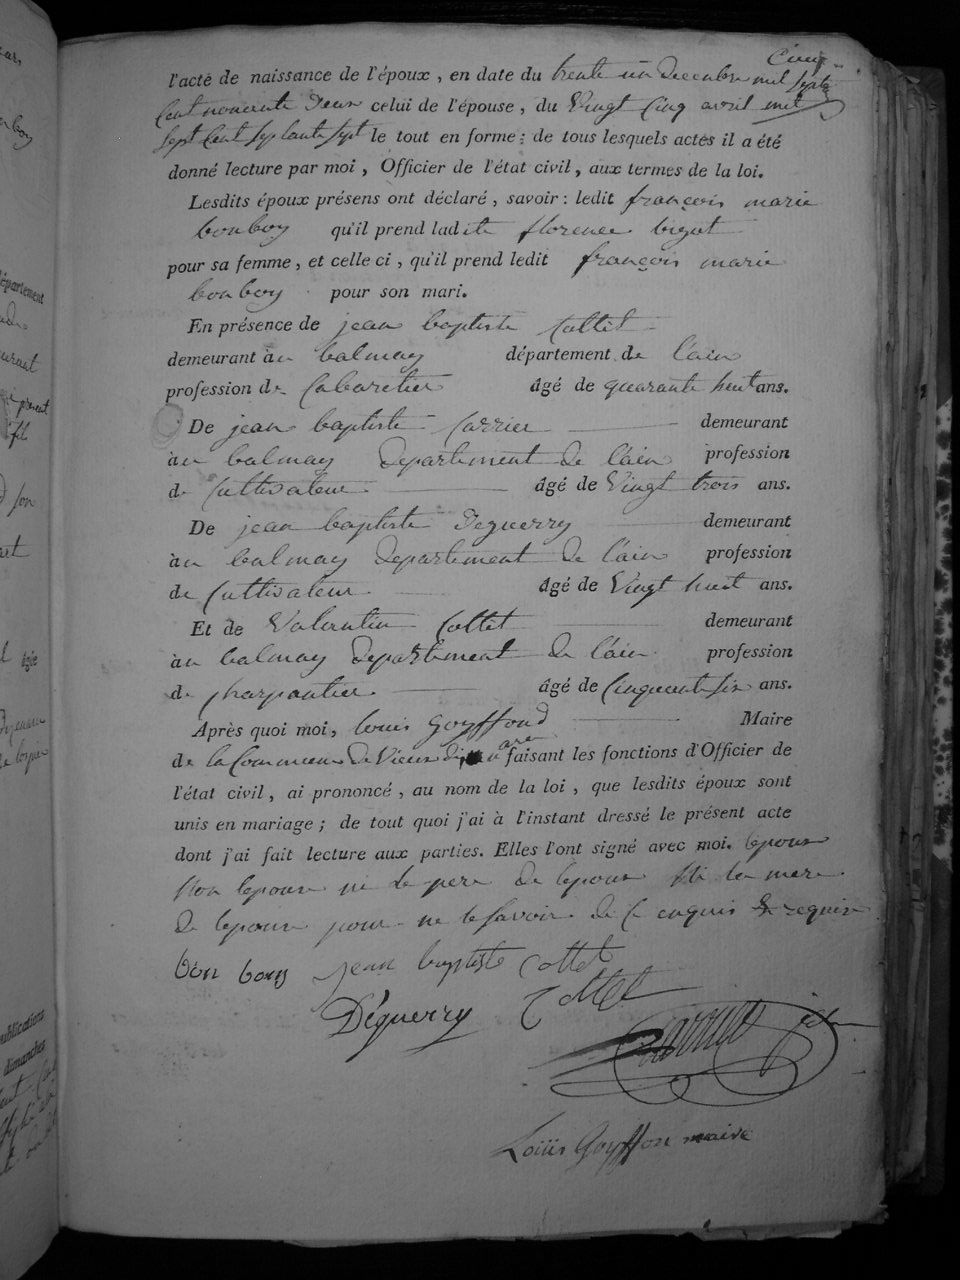 Cinq
l'acte de naissance de l'époux, en date du trente un Decembre mil sept
Cent nonante Deux celui de l'épouse, du Vingt Cinq avril mil
sept Cent septante sept le tout en forme: de tous lesquels actes il a été
donné lecture par moi, Officier de l'état civil, aux termes de la loi.
Lesdits époux présens ont déclaré, savoir: ledit françois marie
bonboy qu'il prend ladite florence bigut
pour sa femme, et celle ci, qu'il prend ledit françois marie
bonboy pour son mari.
En présence de jean baptiste Cottet
demeurant à au balmay département de l'ain
profession de Cabaretier âgé de quarante huit ans.
De jean baptiste Carrier demeurant
à au balmay departement de l'ain profession
de Cultivateur âgé de Vingt trois ans.
De jean baptiste Deguerry demeurant
à au balmay departement de l'ain profession
de Cultivateur âgé de Vingt huit ans.
Et de Valentin Cottet demeurant
à au balmay departement de l'ain profession
de Charpentier âgé de Cinquante six ans.
Après quoi moi, louis Goyffond Maire
de la Commune De Vieux faisant les fonctions d'Officier de
l'état civil, ai prononcé, au nom de la loi, que lesdits époux sont
unis en mariage; de tout quoi j'ai à l'instant dressé le présent acte
dont j'ai fait lecture aux parties. Elles l'ont signé avec moi. lepoux
Non lepouse ni le pere de lepoux Ni la mere
de lepouse pour ne le savoir de ce enquis & requis
bon boy jean baptiste Cottet
Déguerry Cottet
Loüis Goyffon maire